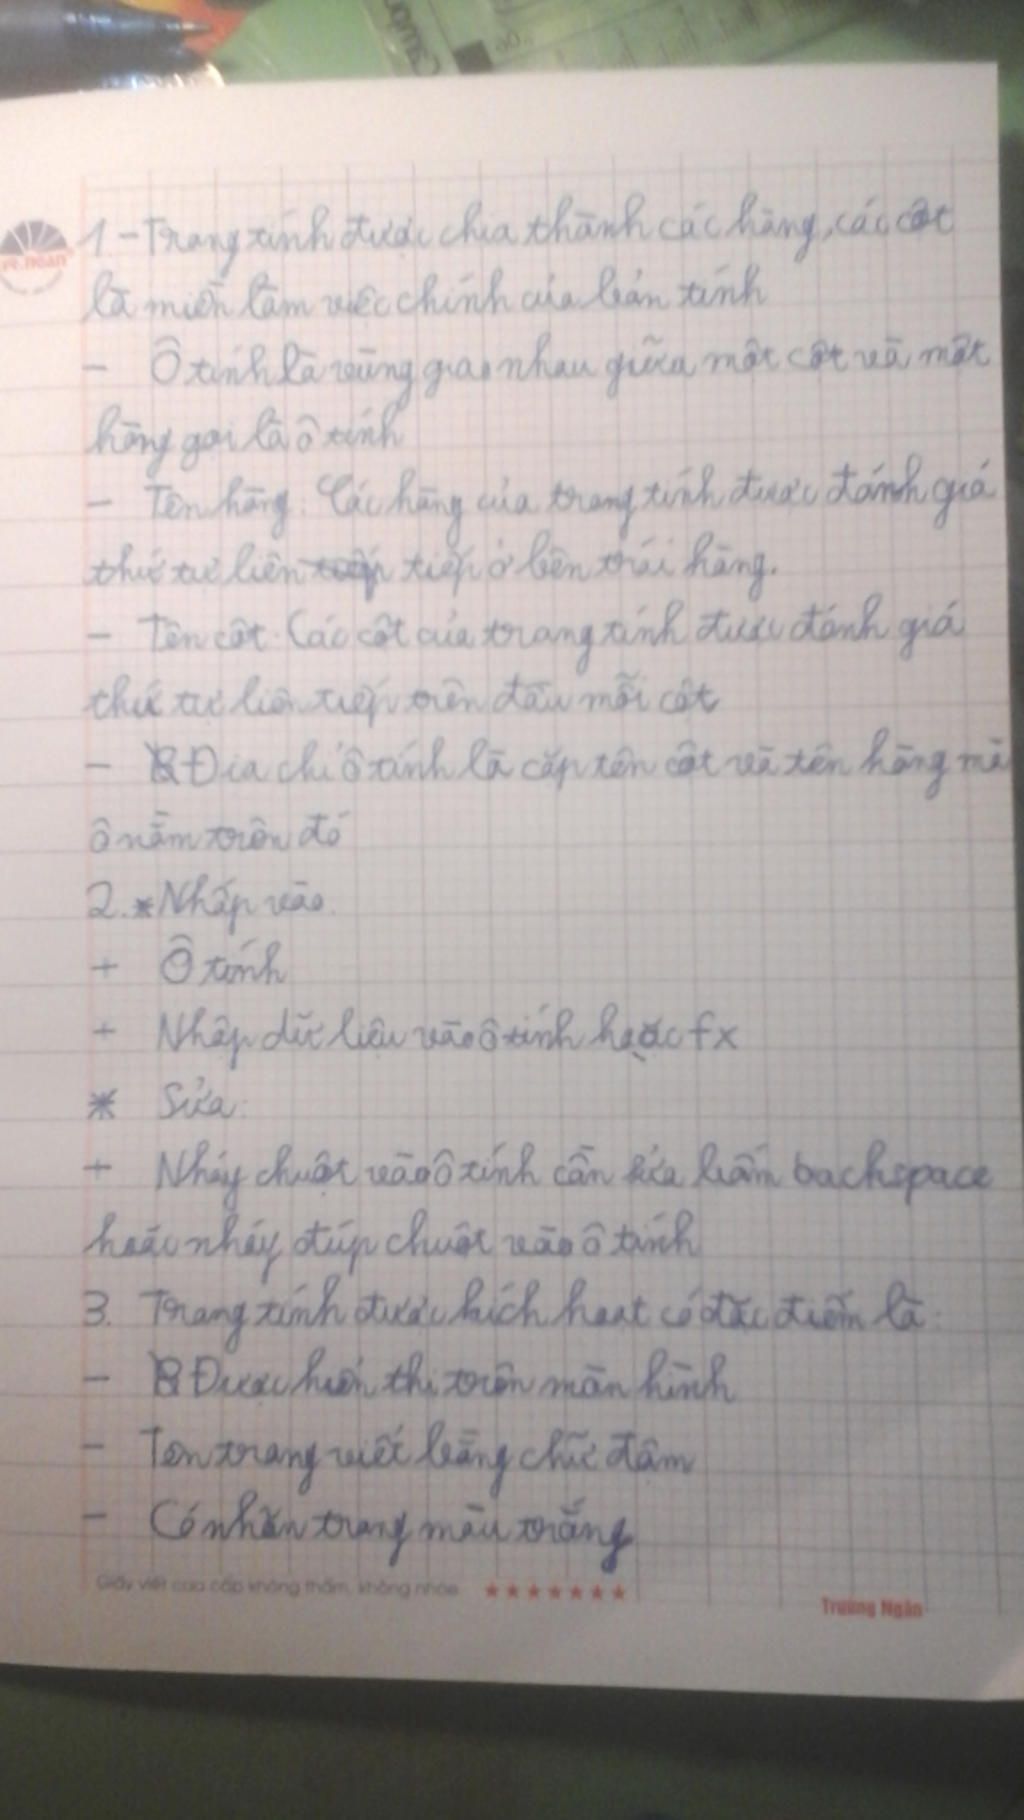 1 - Trang tính được chia thành các hàng, các cột
là miền làm việc chính của bản tính
- Ô tính là vùng giao nhau giữa một cột và một
hàng gọi là ô tính
- Tên hàng: Các hàng của trang tính được đánh giá
thứ tự liên tiếp ở bên trái hàng.
- Tên cột: Các cột của trang tính được đánh giá
thứ tự liên tiếp trên đầu mỗi cột
- Địa chỉ ô tính là cặp tên cột và tên hàng mà
ô nằm trên đó
2. * Nhấp vào
+ Ô tính
+ Nhập dữ liệu vào ô tính hoặc fx
* Sửa:
+ Nháy chuột vào ô tính cần sửa bấm backspace
hoặc nháy đúp chuột vào ô tính
3. Trang tính được kích hoạt có đặc điểm là:
- Được hiển thị trên màn hình
- Tên trang viết bằng chữ đậm
- Có nhãn trang màu trắng
Giấy viết cao cấp không thấm, không nhòe ★★★★★★★
Trường Ngân